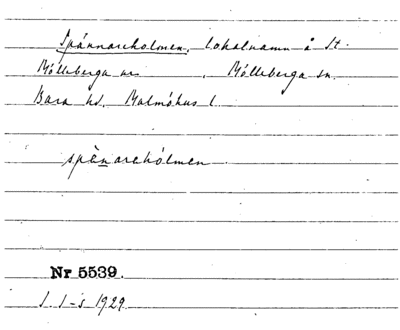 Spánnareholmen, lokalnamn å St.
Mölleberga nrs , Mölleberga sn.
Bara hd. Malmöhus l.
spènarehólmen
Nr 5539.
1929